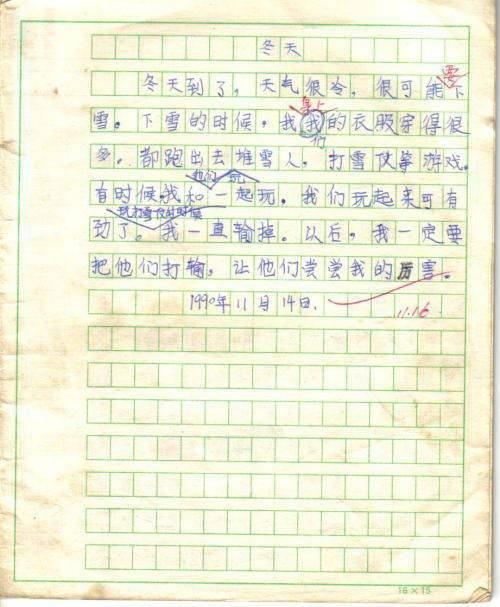 冬天
冬天到了，天气很冷，很可能要下
雪。下雪的时候，我身上我的衣服穿得很
多。们都跑出去堆雪人，打雪仗等游戏。
有时候，我和他们一起玩玩。我们玩起来可有
劲了。玩打雪仗的时候我一直输掉。以后，我一定要
把他们打输，让他们尝尝我的厉害。
1990年11月14日.
11.16
16×15